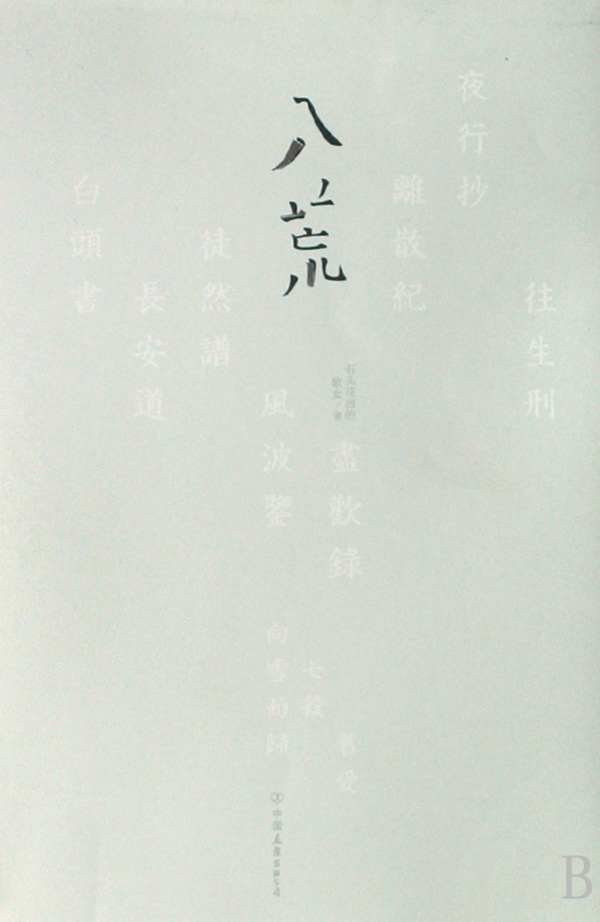 八荒
往生刑
夜行抄
離散紀
盡歡錄
風波鑒
徒然譜
長安道
白頭書
舊愛
七殺
向雪而歸
歌女 著
中国友谊出版公司
B